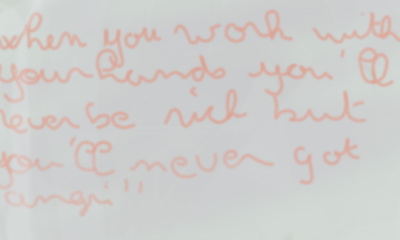 when you work with
your hands you'll
never be rich but
you'll never got
angri"